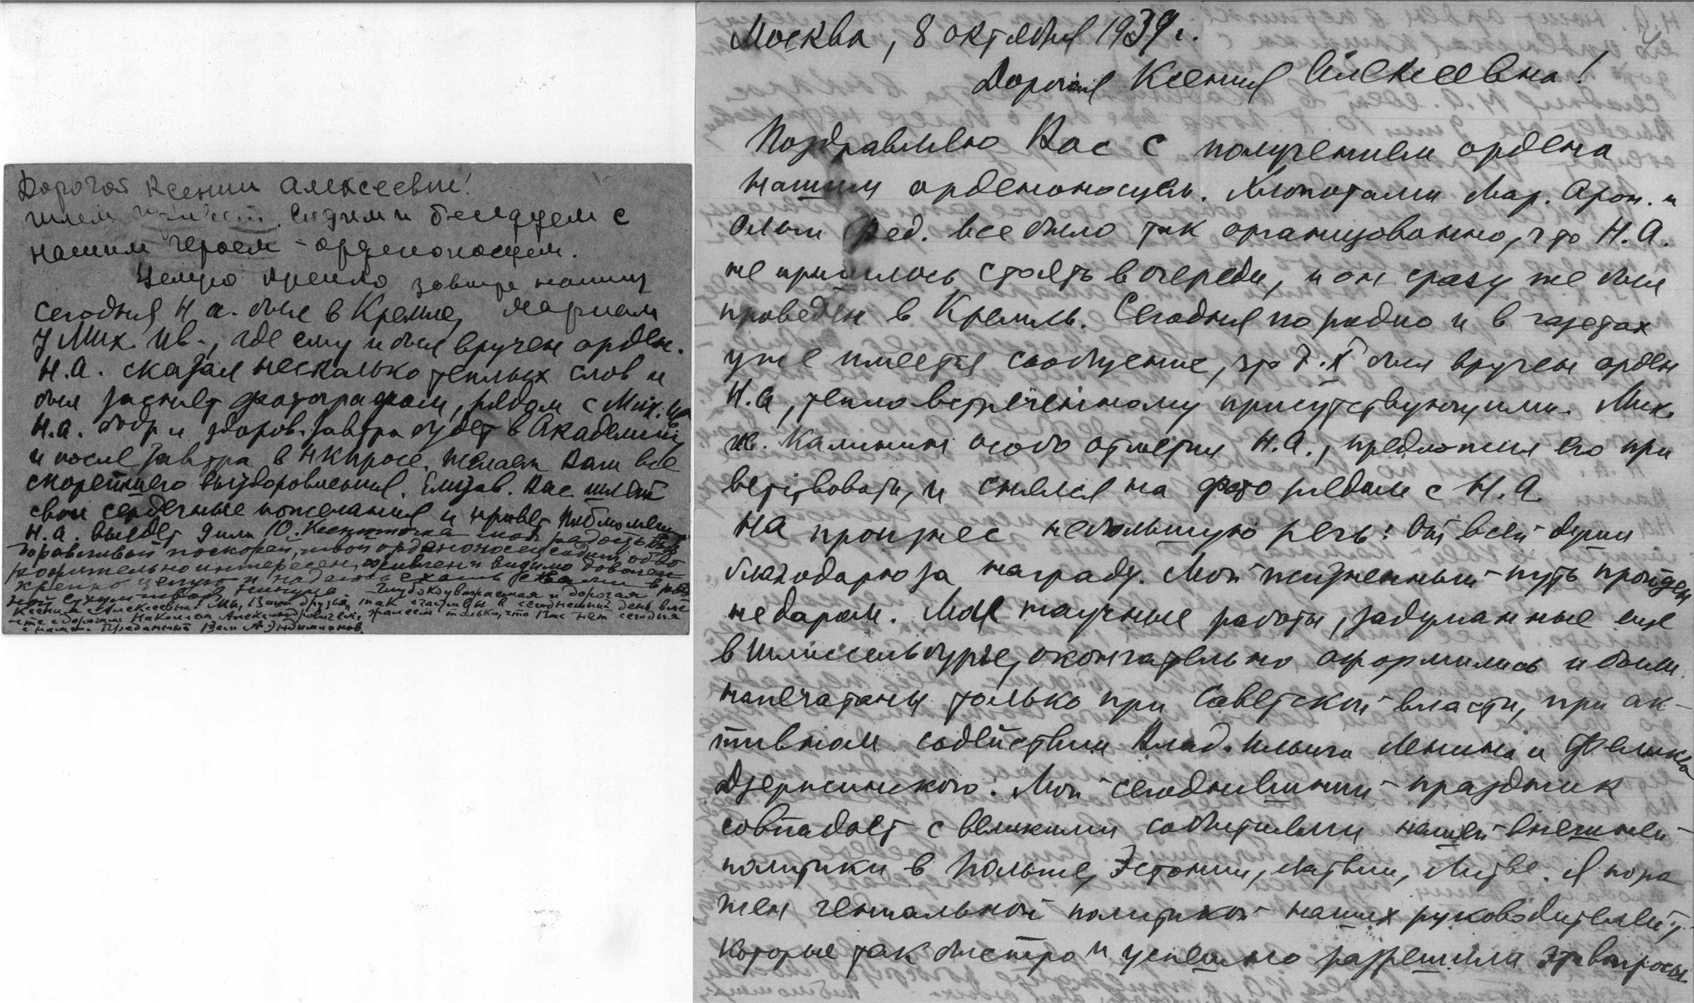 Дорогой Ксении Алексеевне!
шлем привет. Сидим и беседуем с
нашим героем - орденоносцем.
Целую крепко завтра напишу
Сегодня Н.А. был в Кремле, Мариам
у Мих. Ив., где ему и был вручен орден.
Н.А. сказал несколько теплых слов и
был заснят фотографом, рядом с Мих. Ив.
Н.А. бодр и здоров. Завтра будет в Академии
и после завтра в Нкпросе. Желаем Вам все
скорейшего выздоровления. Елизав. Вас. шлет
свои сердечные пожелания и привет
Н.А. выедет 9 или 10. Ксениточка моя радость
поскорей, твой орденоносец сидит
интересен, оживлен и видимо доволен
крепко целую и надеюсь
Глубокоуважаемая и дорогая
Ксения Алексеевна! Мы, Ваши друзья, так счастливы в сегодняшний день
с дорогим Николаем Александровичем, только, что Вас нет сегодня
с нами. Преданный Вам
Москва, 8 октября 1939 г.
Дорогая Ксения Алексеевна!
Поздравляю Вас с получением ордена
нашим орденоносцем. Хлопотами Мар. Арон. и
Ольги Фед. все было так организовано, что Н.А.
не пришлось стоять в очереди, и он сразу же был
проведен в Кремль. Сегодня по радио и в газетах
уже имеется сообщение, что 7.X был вручен орден
Н.А, тепло встреченному присутствующими. Мих.
Ив. Калинин особо отметил Н.А., предложил его при
ветствовать, и снялся на фото рядом с Н.А.
НА произнес небольшую речь: От всей души
благодарю за награду. Мой жизненный путь пройден
не даром. Мои научные работы, задуманные еще
в Шлиссельбурге, окончательно оформились и были
напечатаны только при Советской власти, при ак-
тивном содействии Влад. Ильича Ленина и Феликса
Дзержинского. Мой сегодняшний праздник
совпадает с великими событиями нашей внешней
политики в Польше, Эстонии, Латвии, Литве. Я пора
жен гениальной политикой наших руководителей,
которые так быстро и успешно разрешили эти вопросы